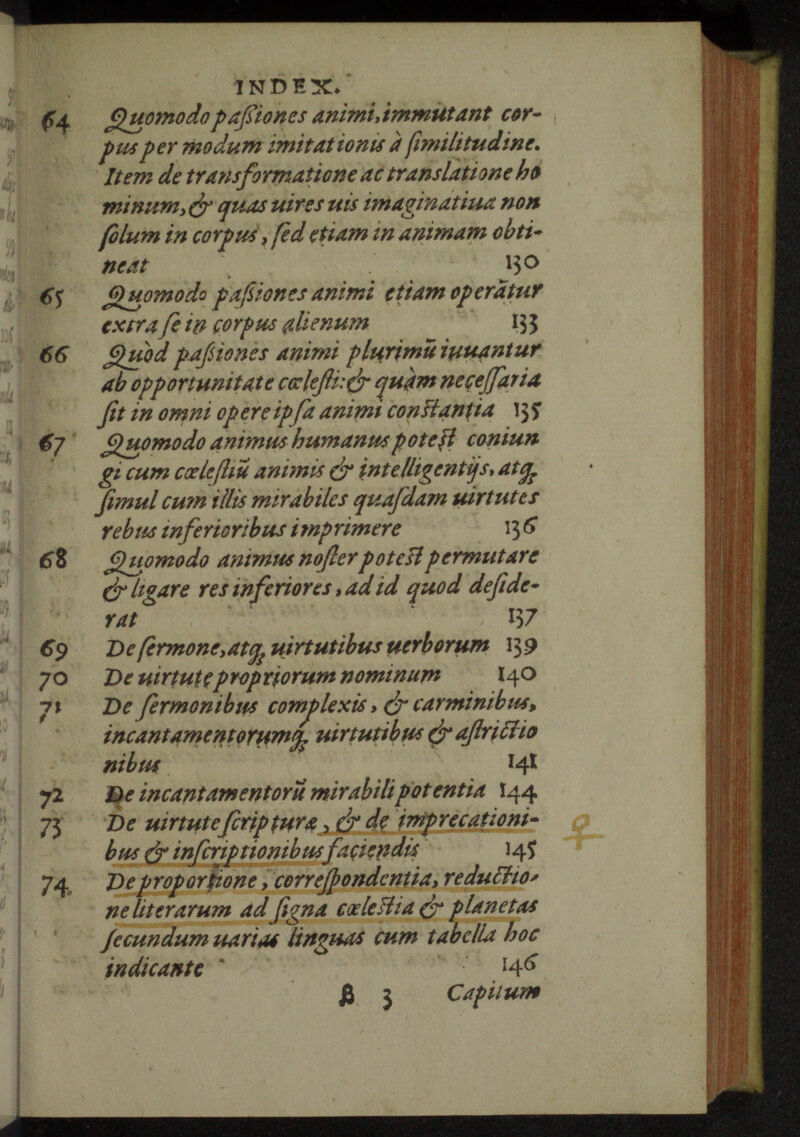 INDEX.
64 Quomodo paſsiones animi, immutant cor-
pus per modum imitationis à ſimilitudine.
Item de transformatione ac translatione ho
minum, & quas uires uis imaginatiua non
ſolum in corpus, ſed etiam in animam obti-
neat 130
65 Quomodo paſsiones animi etiam operātur
extra ſe in corpus alienum 133
66 Quòd paſsiones animi plurimū iuuantur
ab opportunitate cœleſti: & quàm neceſſaria
ſit in omni opere ipſa animi constantia 135
67 Quomodo animus humanus poteſt coniun
gi cum cœleſtiū animis & intelligentijs, atq;
ſimul cum illis mirabiles quaſdam uirtutes
rebus inferioribus imprimere 136
68 Quomodo animus noſter potest permutare
& ligare res inferiores, ad id quod deſide-
rat 137
69 De ſermone, atq; uirtutibus uerborum 139
70 De uirtute propriorum nominum 140
71 De ſermonibus complexis, & carminibus,
incantamentorumq; uirtutibus & aſtrictio
nibus 141
72 De incantamentorū mirabili potentia 144
73 De uirtute ſcripturæ, & de imprecationi-
bus & inſcriptionibus faciendis 145
74 De proportione, correſpondentia, reductio-
ne literarum ad ſigna cœlestia & planetas
ſecundum uarias linguas cum tabella hoc
indicante 146
B 3 Capitum